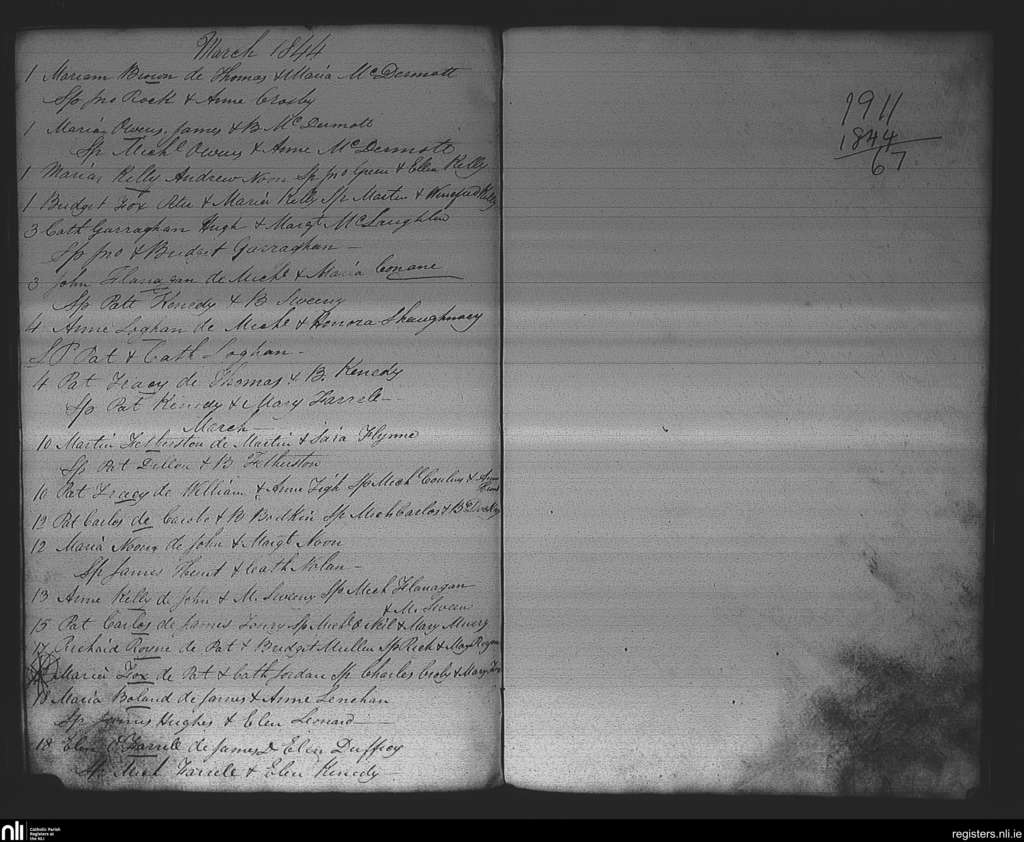 March 1844
1 Mariam Brown de Thomas & Maria McDermott
Sp Jno Rock & Anne Crosby
1 Maria Owens, James & B. McDermott
Sp Michl Owens & Anne McDermott
1 Marias Kelly Andrew Noon Sp Jno Green & Ellen Kelly
1 Bridget Fox & Maria Kelly Sp Martin & Winefred Kelly
3 Cath Garraghan Hugh & Margt McLaughlin
Sp Jno & Bridget Garraghan -
3 John Flanagan de Michl & Maria Conane
Sp Patt Kenedy & B Sweeny
4 Anne Loghan de Michl & Honora Shaughnecy
SP Pat & Cath Loghan -
4 Pat Tracy de Thomas & B. Kenedy
Sp Pat Kenedy & Mary Farrele -
March -
10 Martin Fetherston de Martin & Flynne
Sp Pat Dillon & B Fetherston
10 Pat Tracy de William & Anne Sp Michl &
12 Pat Carlos de & B Bodkin Sp Mich Carlos &
12 Maria Noone de John & Margt Noon
Sp James Hunt & Cath Nolan -
13 Anne Kelly de John & M. Sweeny Sp Mich Flanagan
& M. Sweeny
15 Pat Carlos de James Sp Michl & Mary
Richard de Pat & Bridget Mullen Sp Rich & Mary
Maria Fox de Pat & Cath Jordan Sp Charles & Mary
18 Maria Boland de James & Anne Lenehan
Sp James Hughes & Elen Leonard -
18 Elen Farrele de James & Elen Duffey
Sp Mich Farrele & Elen Kenedy -
1911
1844
67
nli Catholic Parish
Registers at
the NLI
registers.nli.ie